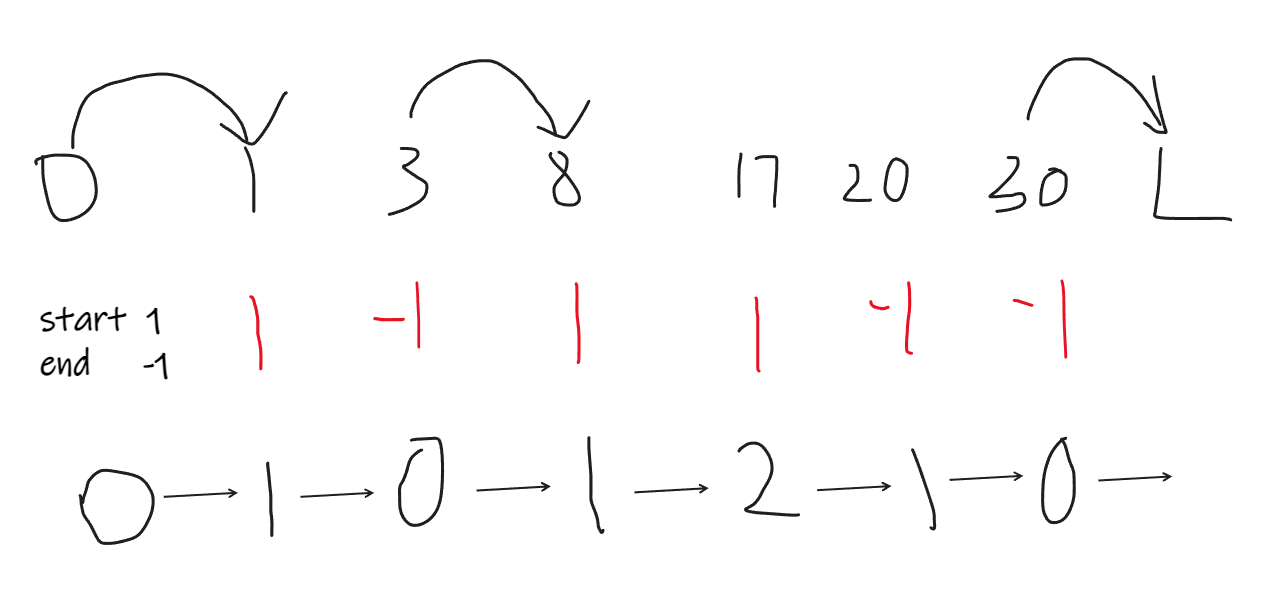 0 1 3 8 17 20 30 L
start 1 1 -1 1 1 -1 -1
end -1
0 → 1 → 0 → 1 → 2 → 1 → 0 →